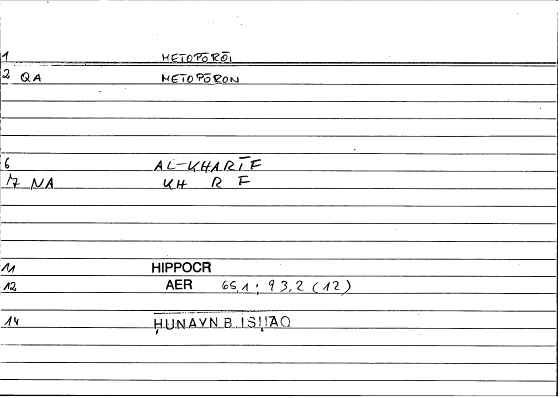 1 METOPŌRŌI
2 QA METOPŌRON
6 AL-KHARĪF
17 NA KH R F
11 HIPPOCR
12 AER 65,1; 93,2 (12)
14 ḤUNAYN B. ISḤĀQ